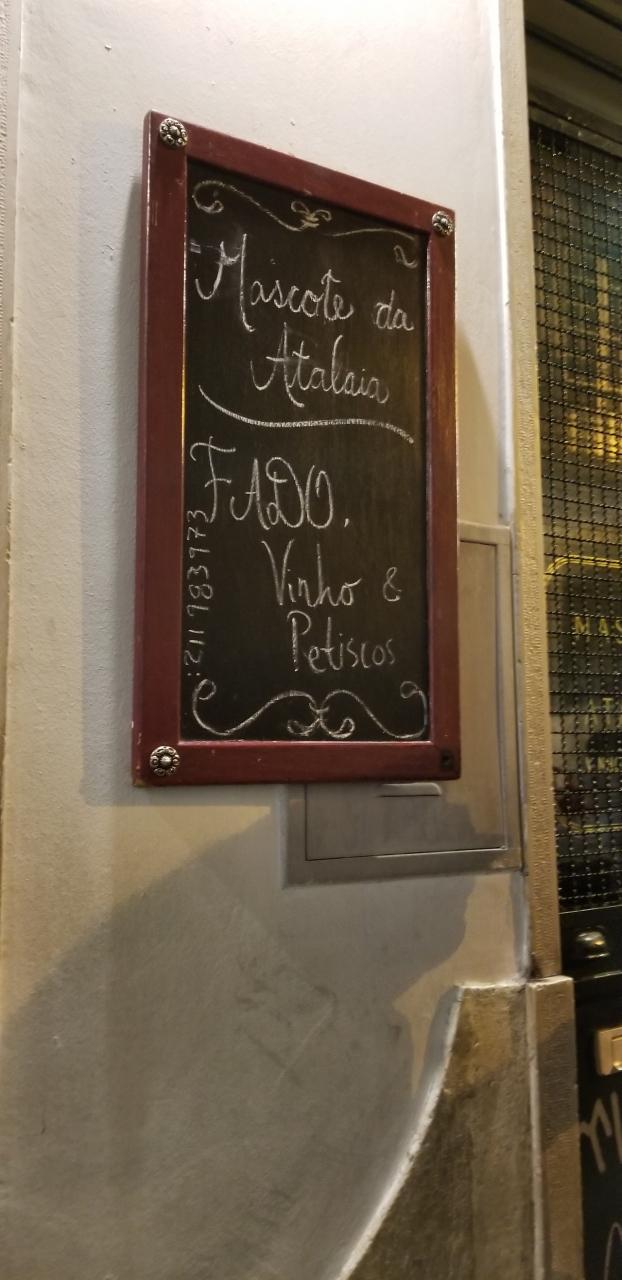 "Mascote da
Atalaia
FADO,
Vinho &
Petiscos
:211 783973
MAS